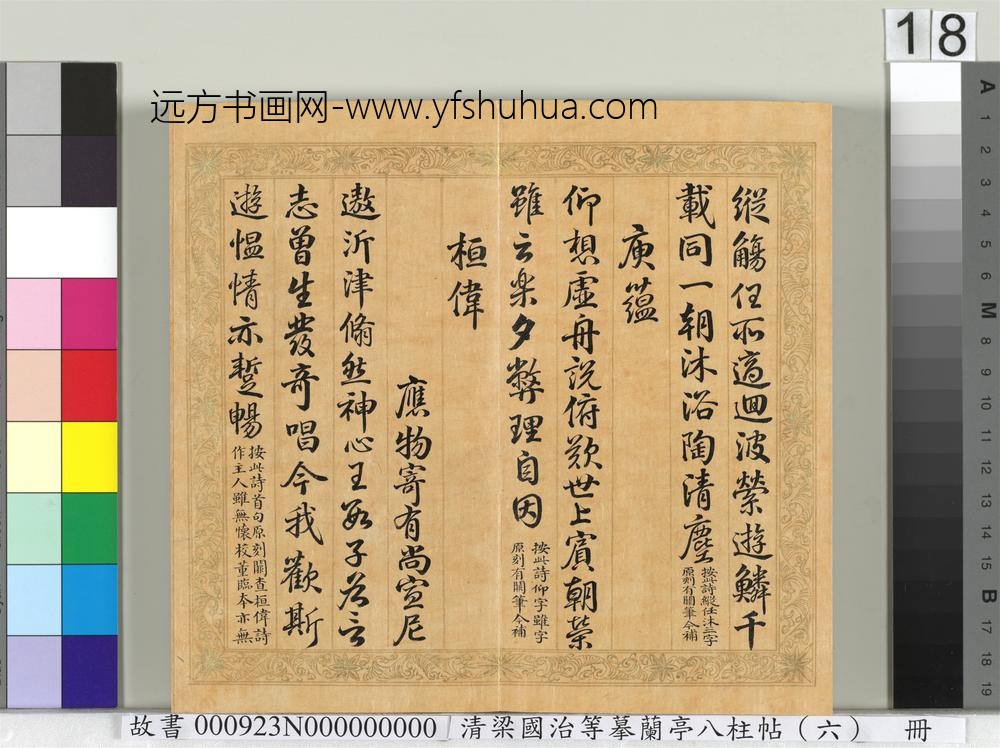 18
远方书画网-www.yfshuhua.com
縱觴任所適迴波縈遊鱗千
載同一朝沐浴陶清塵
按此詩縱任沐三字
原刻有闕筆今補
庾蘊
仰想虛舟說俯歎世上賓朝榮
雖云楽夕弊理自因
按此詩仰字雖字
原刻有闕筆今補
桓偉
應物寄有尚宣尼
遨沂津翛然神心王數子各言
志曾生發奇唱今我歡斯
遊慍情亦蹔暢
按此詩首句原刻闕查桓偉詩
作主人雖無懷校董臨本亦無
A 1 2 3 4 5 6 M 8 9 10 11 12 13 14 15 B 17 18 19
故書 000923N000000000 清梁國治等摹蘭亭八柱帖（六） 冊